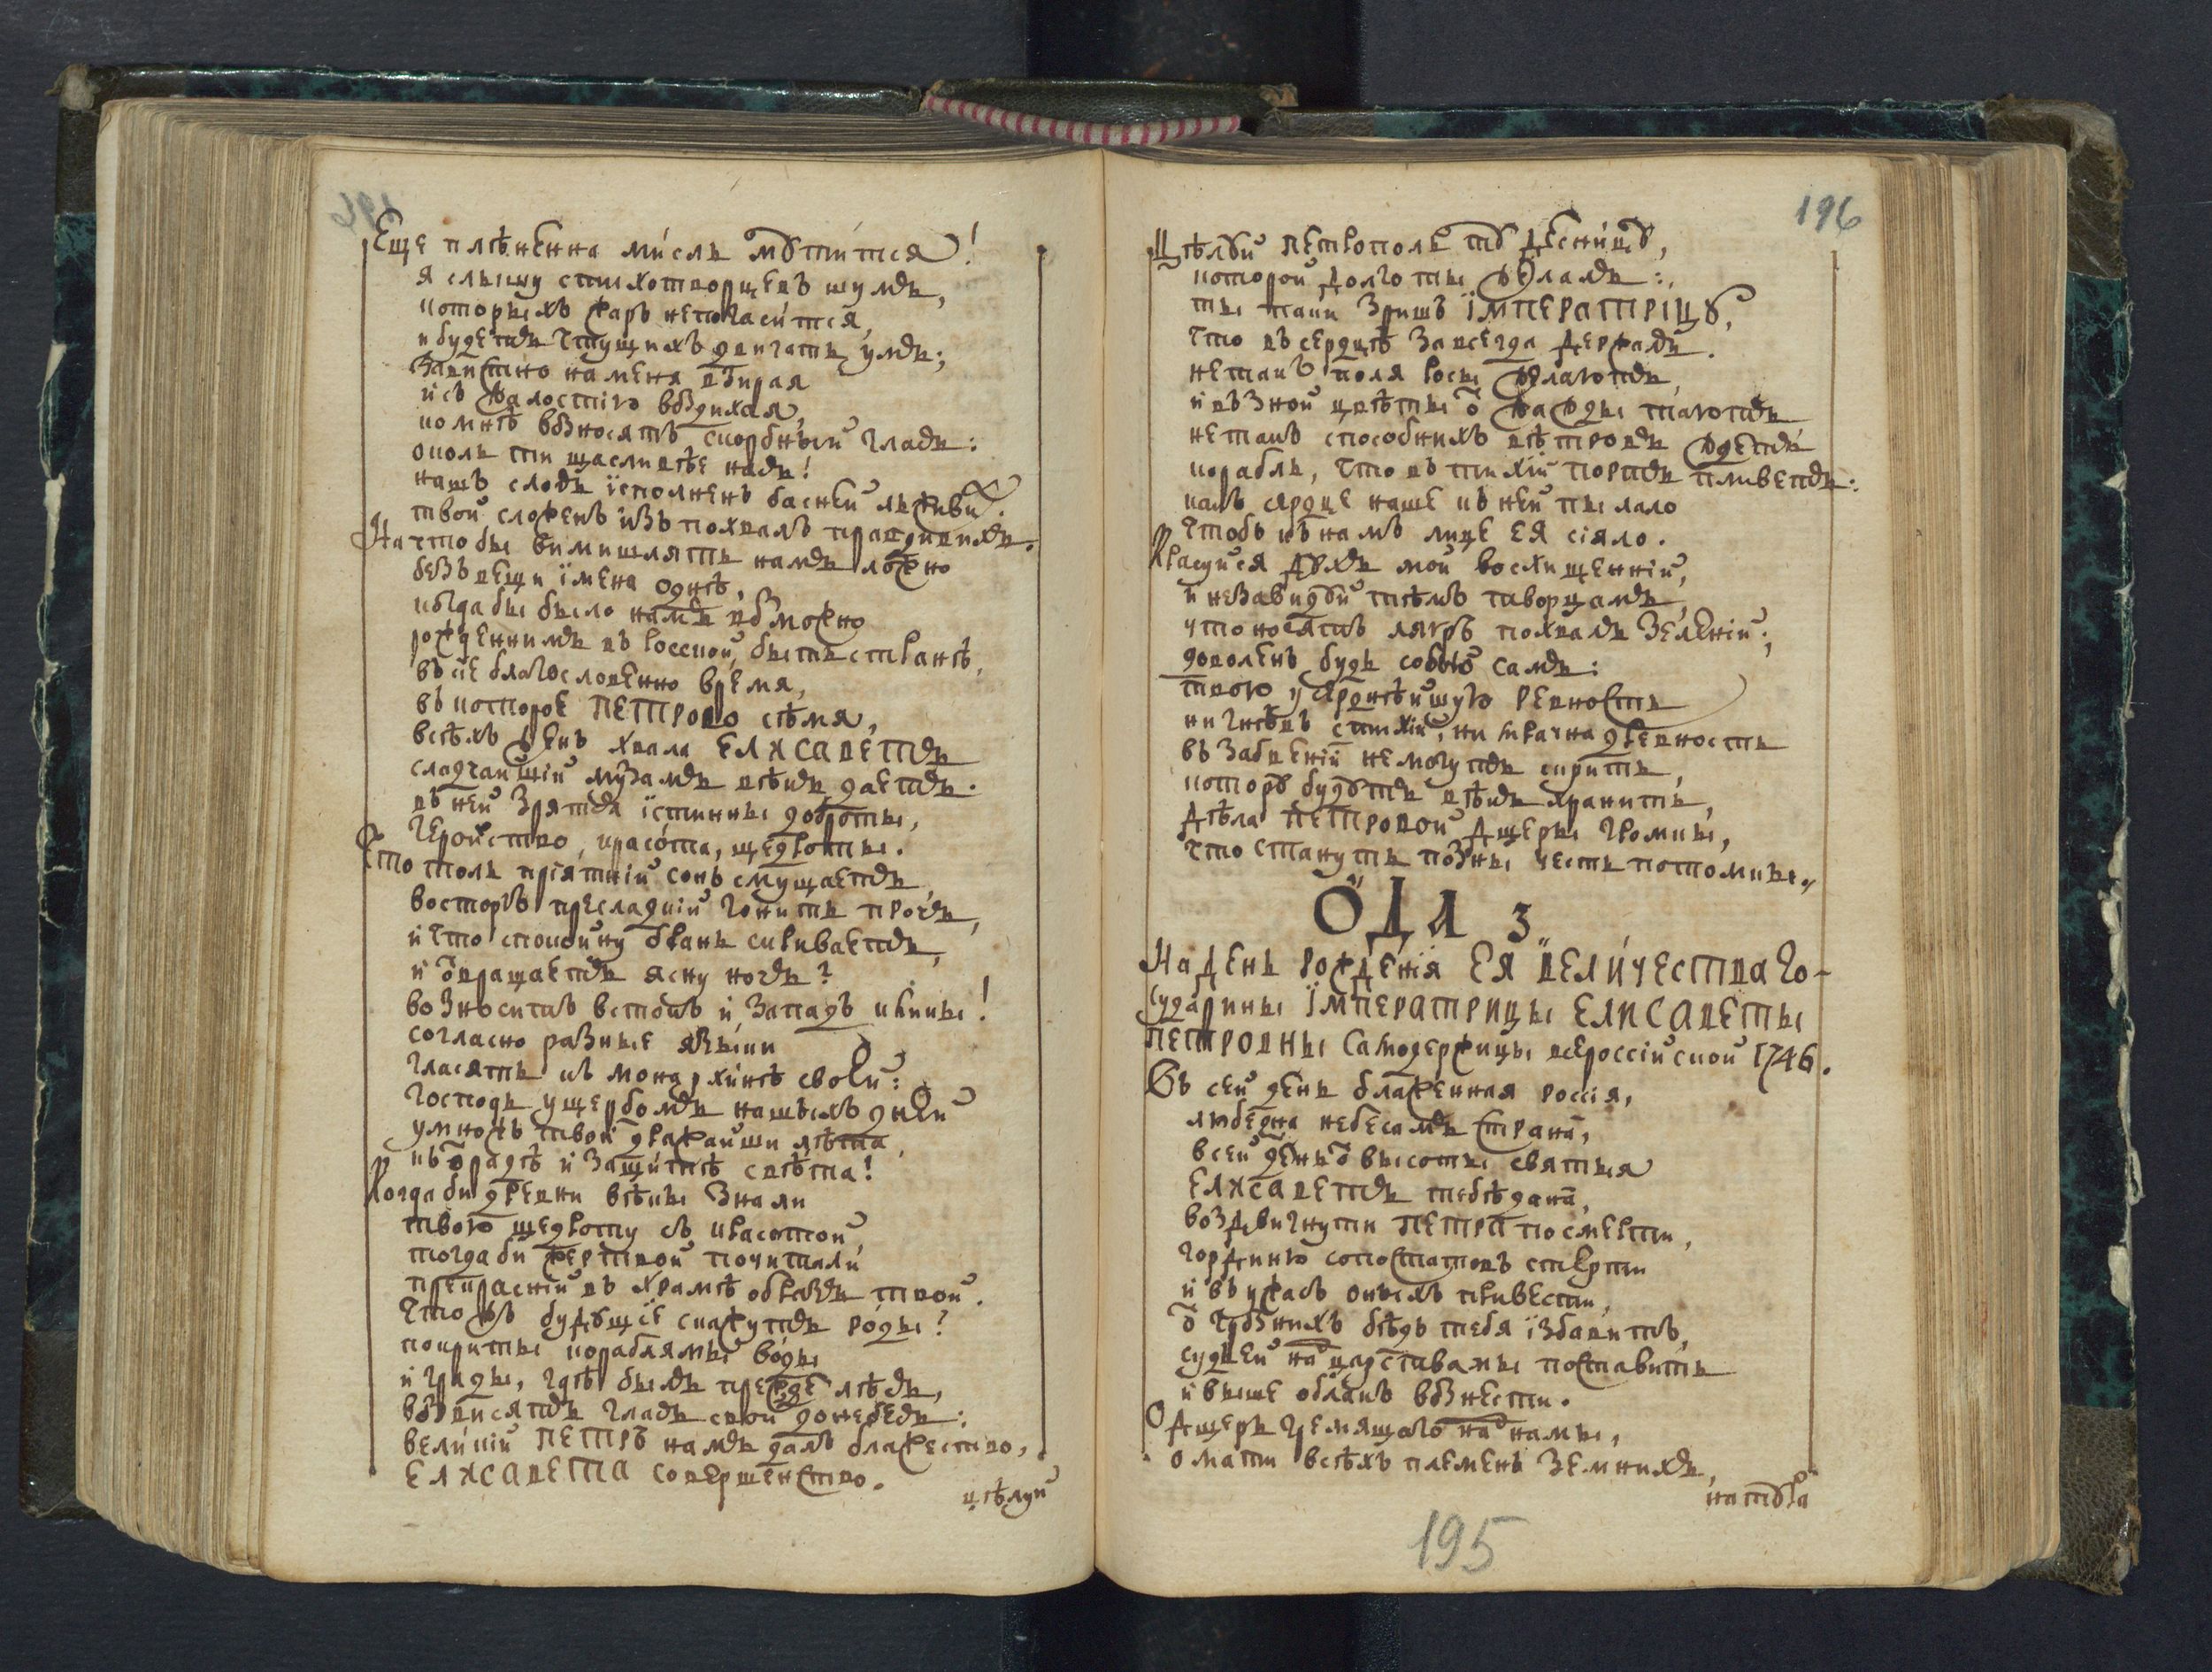 Еще плѣненна мысль мѹтится!
я слышу стихотворцевъ шумъ,
которыхъ жаръ непогаситса,
и будетъ чтущихъ двигать умъ;
Завистно на меня взирая
и съ жалостію воздихая,
ко мнѣ возносятъ скорбный гласъ:
о коль ти щасливѣе насъ!
нашъ слогъ їсполненъ басней лживих.
твой сложенъ изъ похвалъ правдивихъ.
На что бы вимишлять намъ ложно
безъ вещи їмена однѣ,
когда бы было намъ возможно
рожденнимъ въ росской быть странѣ,
въ сїе благословенно время,
въ которое ПЕТРОВО сѣмя,
всѣхъ женъ хвала ЕЛИСАВЕТЪ
сладчайшій мѹзамъ вѣкъ даетъ.
въ ней зрятся їстинны доброты,
геройство, красота, щедроты.
Что толь прїятній сонъ смущаетъ,
восторгъ пресладкій гонитъ прочь,
и что спокойну брань скриваетъ,
и ѿвращаетъ ясну ночь?
возноситъ встокъ и западъ клики!
согласно разные языки
гласятъ къ монархинѣ своей:
господь ущербомъ нашыхъ дней
умножь твои дражайши лѣта,
къ ѿрадѣ и защитѣ свѣта!
Когда би древни вѣки знали
твою щедроту съ красотой,
тогда би жертвой почитали
прекрасній въ храмѣ образъ твой.
Что жъ будѹщїе скажутъ роды?
покриты кораблями воды
и грады, гдѣ былъ прежде лѣсъ,
возвисятъ гласъ свой до небесъ:
великій ПЕТРЪ намъ далъ блаженство,
ЕЛИСАВЕТА совершенство.
цѣлуй
196
Цѣлѹй ПЕТРОПОЛЬ тѹ десницѹ,
которой долго ты желалъ:
ты паки зришъ ЇМПЕРАТРІЦѸ,
что въ сердцѣ завсегда держалъ.
не такъ поля росы желаютъ,
и въ зной цвѣты ѿ жажды таютъ
не такъ способнихъ вѣтровъ ждетъ
корабль, что въ тихій портъ пливетъ:
какъ сердце наше къ ней пылало
чтобъ къ намъ лице ея сіяло.
Красуйся дѹхъ мой восхищенній,
и незавидѹй тѣмъ творцамъ,
что носятъ лявръ похвалъ зеленій;
доволенъ будь собою самъ:
твою усерднѣйшую ревность
ни гнѣвъ стихій, ни мрачна древность
въ забвеній немогутъ скрить,
которѹ будѹтъ вѣкъ хранить,
дѣла ПЕТРОВОЙ дщеры громки,
что станутъ позны честь потомки.
ОДА 3
На день рожденія ЕЯ ВЕЛИЧЕСТВА Го-
сударины ЇМПЕРАТРИЦЫ ЕЛИСАВЕТЫ
ПЕТРОВНЫ Самодержицы всероссійской 1746.
Въ сей день блаженная россія,
любезна небесамъ страна,
в сей день ѿ высоты святыя
ЕЛИСАВЕТЪ тебѣ дана,
воздвигнути ПЕТРА по смерти,
гординю сопостатовъ стерти
и въ ужасъ онихъ привести,
ѿ грѹзнихъ бѣдъ тебя їзбавитъ,
судией на царствамы поставить
и выше облакъ возвести.
О дщерь гремящаго на нами,
о мати всѣхъ племенъ земнихъ,
натѹра
195